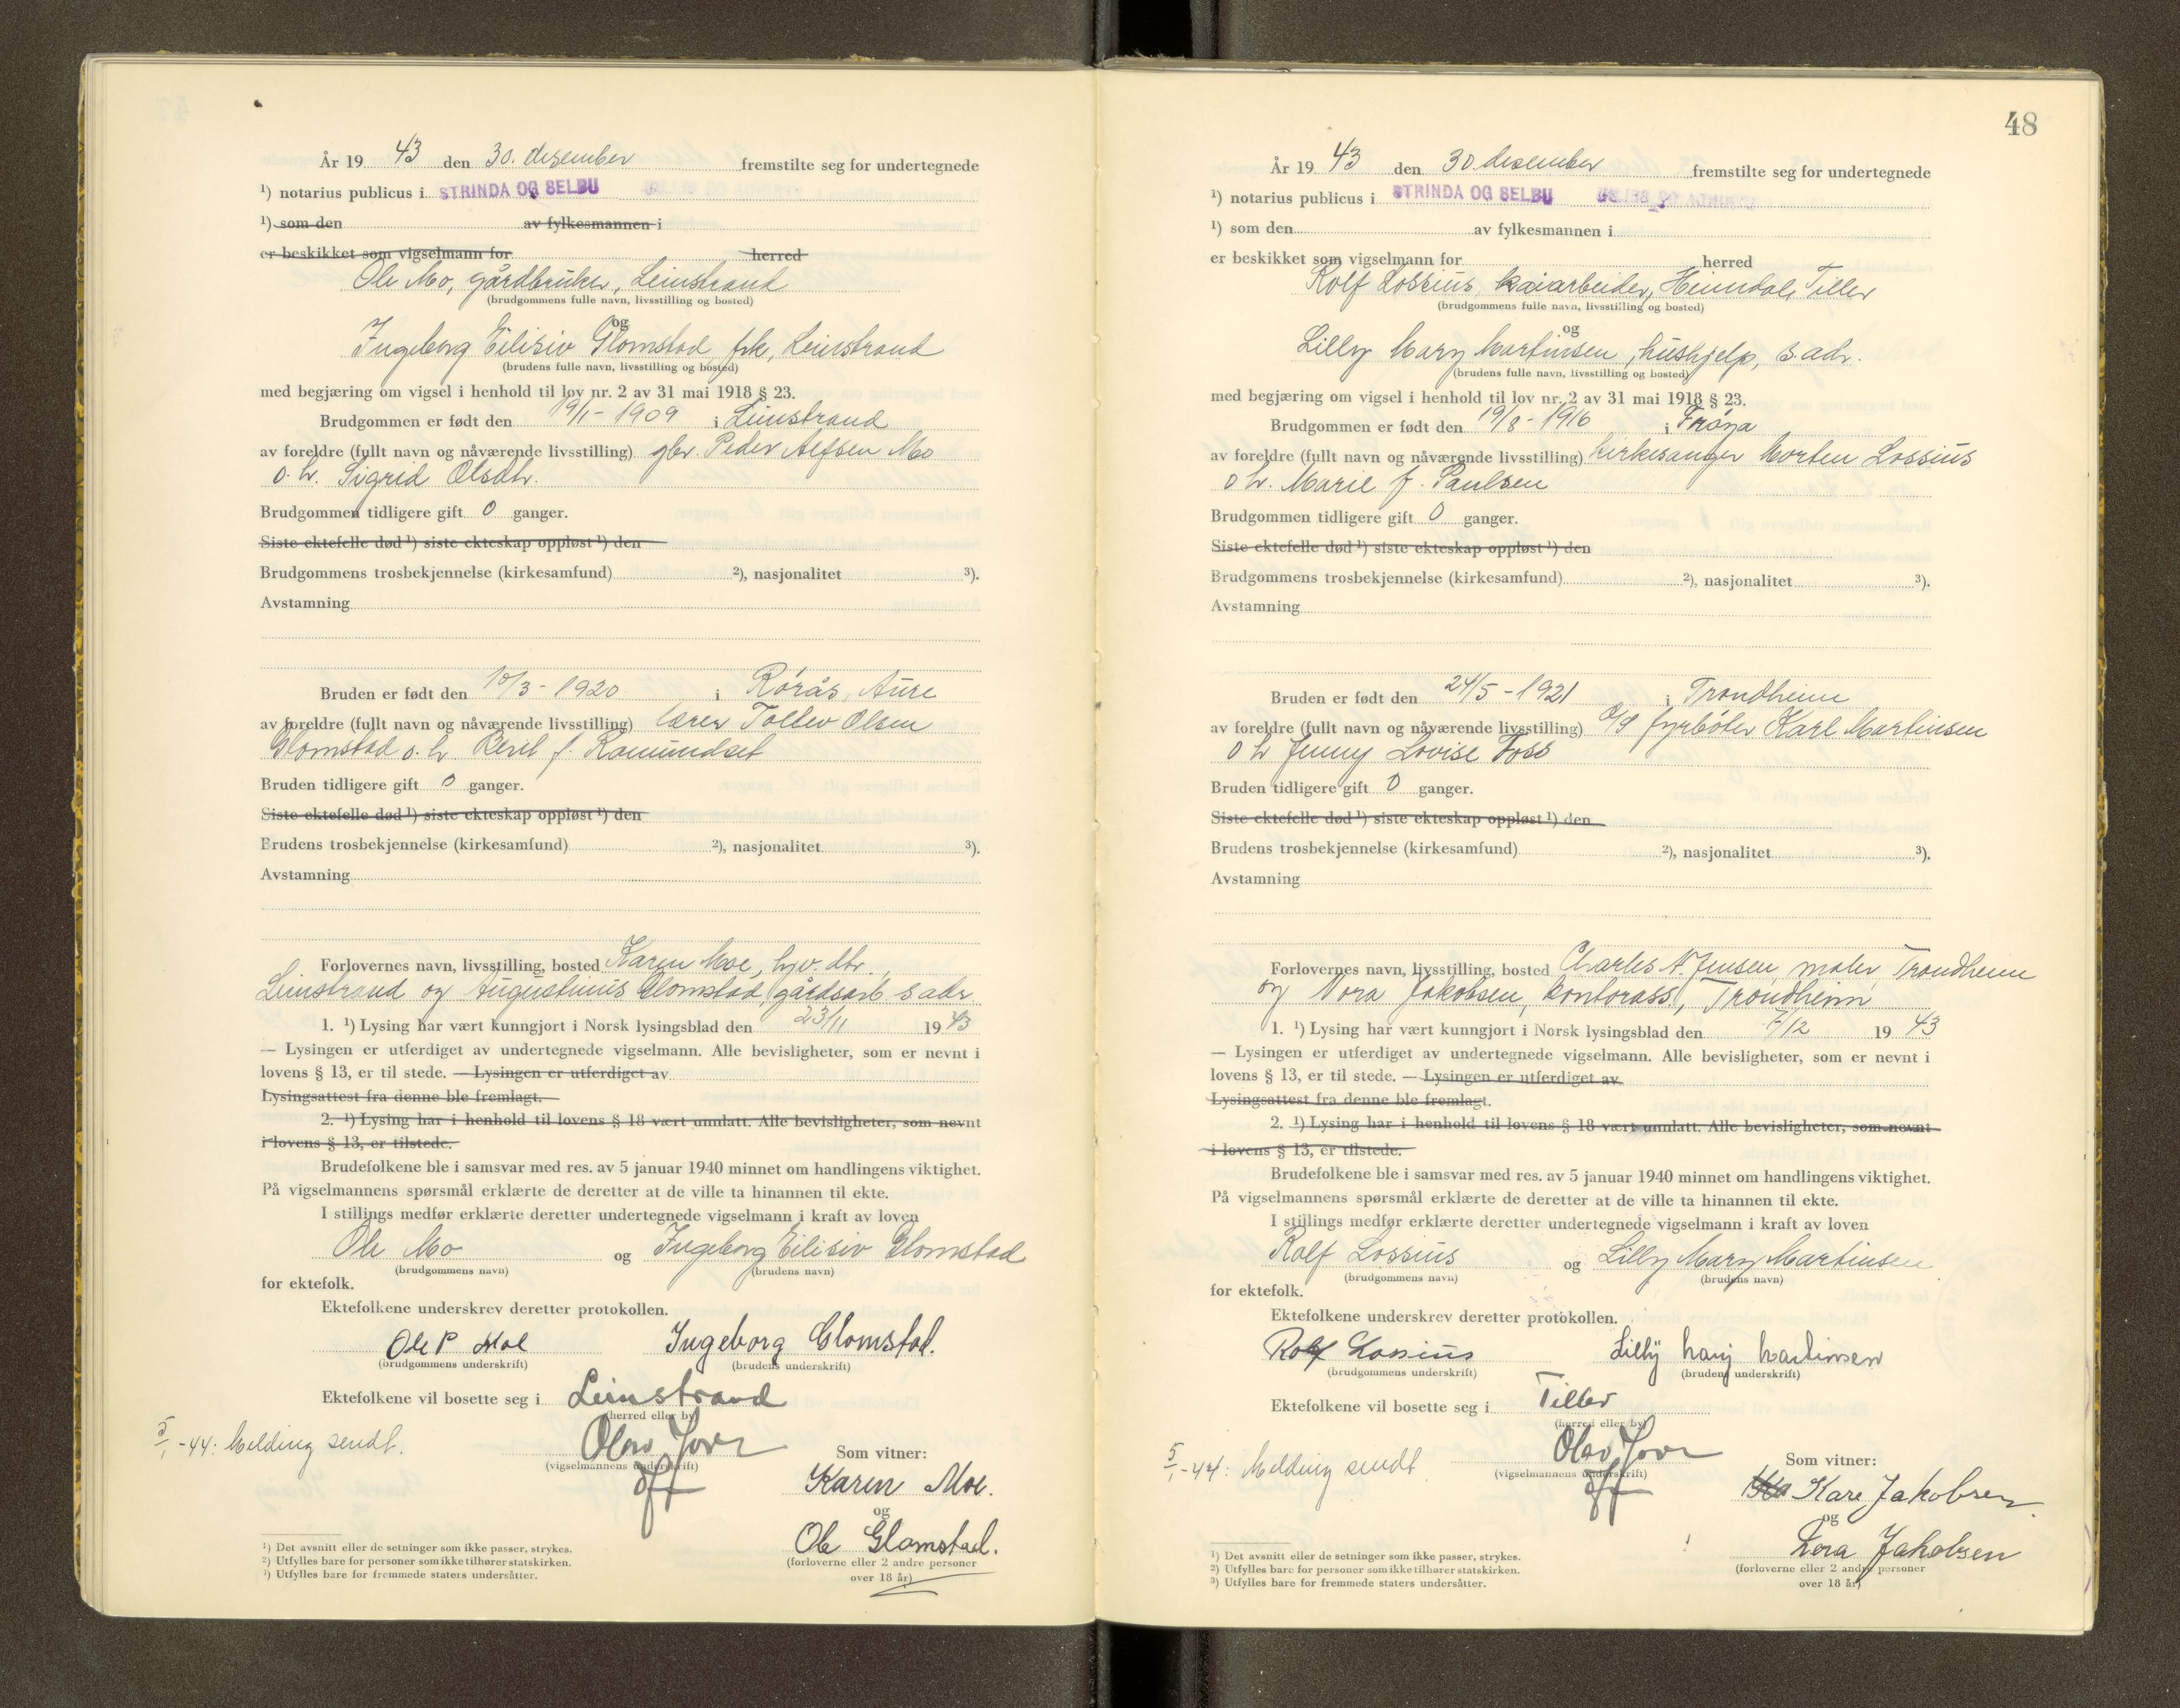 År 19 43 den 30. desember fremstilte seg for undertegnede
¹) notarius publicus i STRINDA OG SELBU
¹) som den av fylkesmannen i
er beskikket som vigselmann for herred
Ole Mo, gårdbruker, Leinstrand
(brudgommens fulle navn, livsstilling og bosted)
og
Ingeborg Eilisiv Glomstad, frk, Leinstrand
(brudens fulle navn, livsstilling og bosted)
med begjæring om vigsel i henhold til lov nr. 2 av 31 mai 1918 § 23.
Brudgommen er født den 19/1 - 1909 i Leinstrand
av foreldre (fullt navn og nåværende livsstilling) gbr. Peder Alfsen Mo
o. h. Sigrid Olsdtr.
Brudgommen tidligere gift 0 ganger.
Siste ektefelle død ¹) siste ekteskap oppløst ¹) den
Brudgommens trosbekjennelse (kirkesamfund) ²), nasjonalitet ³).
Avstamning
Bruden er født den 10/3 - 1920 i Rørås, Aure
av foreldre (fullt navn og nåværende livsstilling) lærer Tollev Olsen
Glomstad o. h Beril f. Romundset
Bruden tidligere gift 0 ganger.
Siste ektefelle død ¹) siste ekteskap oppløst ¹) den
Brudens trosbekjennelse (kirkesamfund) ²), nasjonalitet ³).
Avstamning
Forlovernes navn, livsstilling, bosted Karen Moe, hjv. dtr.,
Leinstrand og Augustinus Glomstad, gårdsarb. s adr
1. ¹) Lysing har vært kunngjort i Norsk lysingsblad den 23/11 19 43
— Lysingen er utferdiget av undertegnede vigselmann. Alle bevisligheter, som er nevnt i
lovens § 13, er til stede. — Lysingen er utferdiget av
Lysingsattest fra denne ble fremlagt.
2. ¹) Lysing har i henhold til lovens § 18 vært unnlatt. Alle bevisligheter, som nevnt
i lovens § 13, er tilstede.
Brudefolkene ble i samsvar med res. av 5 januar 1940 minnet om handlingens viktighet.
På vigselmannens spørsmål erklærte de deretter at de ville ta hinannen til ekte.
I stillings medfør erklærte deretter undertegnede vigselmann i kraft av loven
Ole Mo og Ingeborg Eilisiv Glomstad
(brudgommens navn) (brudens navn)
for ektefolk.
Ektefolkene underskrev deretter protokollen.
Ole P Moe Ingeborg Glomstad.
(brudgommens underskrift) (brudens underskrift)
Ektefolkene vil bosette seg i Leinstrand
(herred eller by)
5/1 -44: Melding sendt.
(vigselmannens underskrift)
Som vitner:
Karen Moe.
og
Ole Glomstad.
(forloverne eller 2 andre personer
over 18 år)
¹) Det avsnitt eller de setninger som ikke passer, strykes.
²) Utfylles bare for personer som ikke tilhører statskirken.
³) Utfylles bare for fremmede staters undersåtter.
48
År 19 43 den 30 desember fremstilte seg for undertegnede
¹) notarius publicus i STRINDA OG SELBU
¹) som den av fylkesmannen i
er beskikket som vigselmann for herred
Rolf Lossius, kaiarbeider, Heimdal, Tiller
(brudgommens fulle navn, livsstilling og bosted)
og
Lilly Mary Martinsen, hushjelp, s. adr.
(brudens fulle navn, livsstilling og bosted)
med begjæring om vigsel i henhold til lov nr. 2 av 31 mai 1918 § 23.
Brudgommen er født den 19/8 - 1916 i Frøya
av foreldre (fullt navn og nåværende livsstilling) kirkesanger Morten Lossius
o h. Marie f. Paulsen
Brudgommen tidligere gift 0 ganger.
Siste ektefelle død ¹) siste ekteskap oppløst ¹) den
Brudgommens trosbekjennelse (kirkesamfund) ²), nasjonalitet ³).
Avstamning
Bruden er født den 24/5 - 1921 i Trondheim
av foreldre (fullt navn og nåværende livsstilling) fyrbøter Karl Martinsen
o h Jenny Lovise Foss
Bruden tidligere gift 0 ganger.
Siste ektefelle død ¹) siste ekteskap oppløst ¹) den
Brudens trosbekjennelse (kirkesamfund) ²), nasjonalitet ³).
Avstamning
Forlovernes navn, livsstilling, bosted Charles N. Jensen, maler, Trondheim
og Nora Jakobsen, kontorass., Trondheim
1. ¹) Lysing har vært kunngjort i Norsk lysingsblad den 7/12 19 43
— Lysingen er utferdiget av undertegnede vigselmann. Alle bevisligheter, som er nevnt i
lovens § 13, er til stede. — Lysingen er utferdiget av
Lysingsattest fra denne ble fremlagt.
2. ¹) Lysing har i henhold til lovens § 18 vært unnlatt. Alle bevisligheter, som nevnt
i lovens § 13, er tilstede.
Brudefolkene ble i samsvar med res. av 5 januar 1940 minnet om handlingens viktighet.
På vigselmannens spørsmål erklærte de deretter at de ville ta hinannen til ekte.
I stillings medfør erklærte deretter undertegnede vigselmann i kraft av loven
Rolf Lossius og Lilly Mary Martinsen
(brudgommens navn) (brudens navn)
for ektefolk.
Ektefolkene underskrev deretter protokollen.
Rolf Lossius Lilly Mary Martinsen
(brudgommens underskrift) (brudens underskrift)
Ektefolkene vil bosette seg i Tiller
(herred eller by)
5/1 -44: Melding sendt
(vigselmannens underskrift)
Som vitner:
Kåre Jakobsen
og
Jakobsen
(forloverne eller 2 andre personer
over 18 år)
¹) Det avsnitt eller de setninger som ikke passer, strykes.
²) Utfylles bare for personer som ikke tilhører statskirken.
³) Utfylles bare for fremmede staters undersåtter.